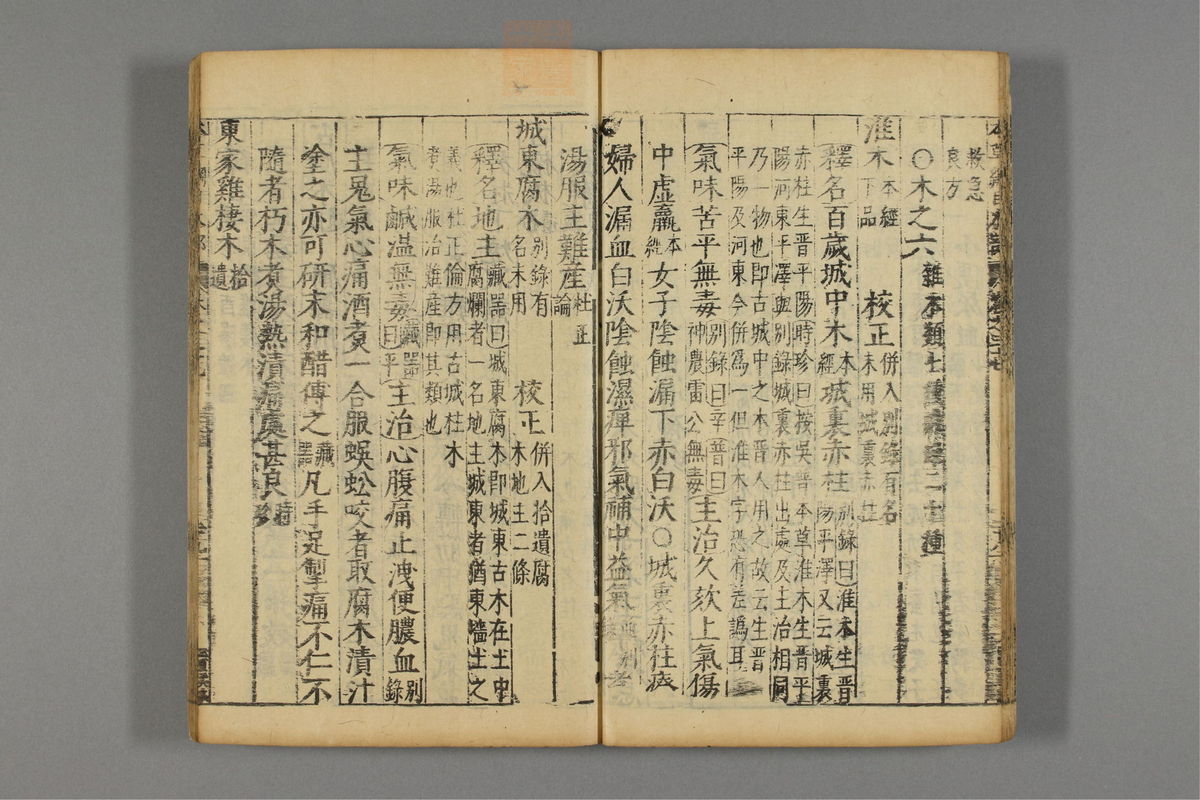 救急
良方
○木之六 雜木類七種
淮木 本經下品 校正 併入別錄有名未用城裏赤柱
釋名百歲城中木 本經 城裏赤柱 別錄曰淮木生晉陽平澤又云城裏
赤柱生晉平陽時珍曰按吳普本草淮木生晉平
陽河東平澤與別錄城裏赤柱出處及主治相同
乃一物也即古城中之木晉人用之故云生晉
平陽及河東今併爲一但淮木字恐有差譌耳
氣味苦平無毒 別錄曰辛普曰神農雷公無毒 主治久欬上氣傷
中虛羸 本經 女子陰蝕漏下赤白沃○城裏赤柱療
婦人漏血白沃陰蝕濕痺邪氣補中益氣
湯服主難產 杜正論
城東腐木 別錄有名未用 校正 併入拾遺腐木地主二條
釋名地主 藏器曰城東腐木即城東古木在土中腐爛者一名地主城東者猶東墻土之
義也杜正倫方用古城柱木
煮湯服治難產即其類也
氣味鹹溫無毒 藏器曰平 主治心腹痛止洩便膿血 別錄
主鬼氣心痛酒煮一合服蜈蚣咬者取腐木漬汁
塗之亦可研末和醋傅之 藏器 凡手足掣痛不仁不
隨者朽木煮湯熱漬痛處甚良 時珍
東家雞棲木 拾遺